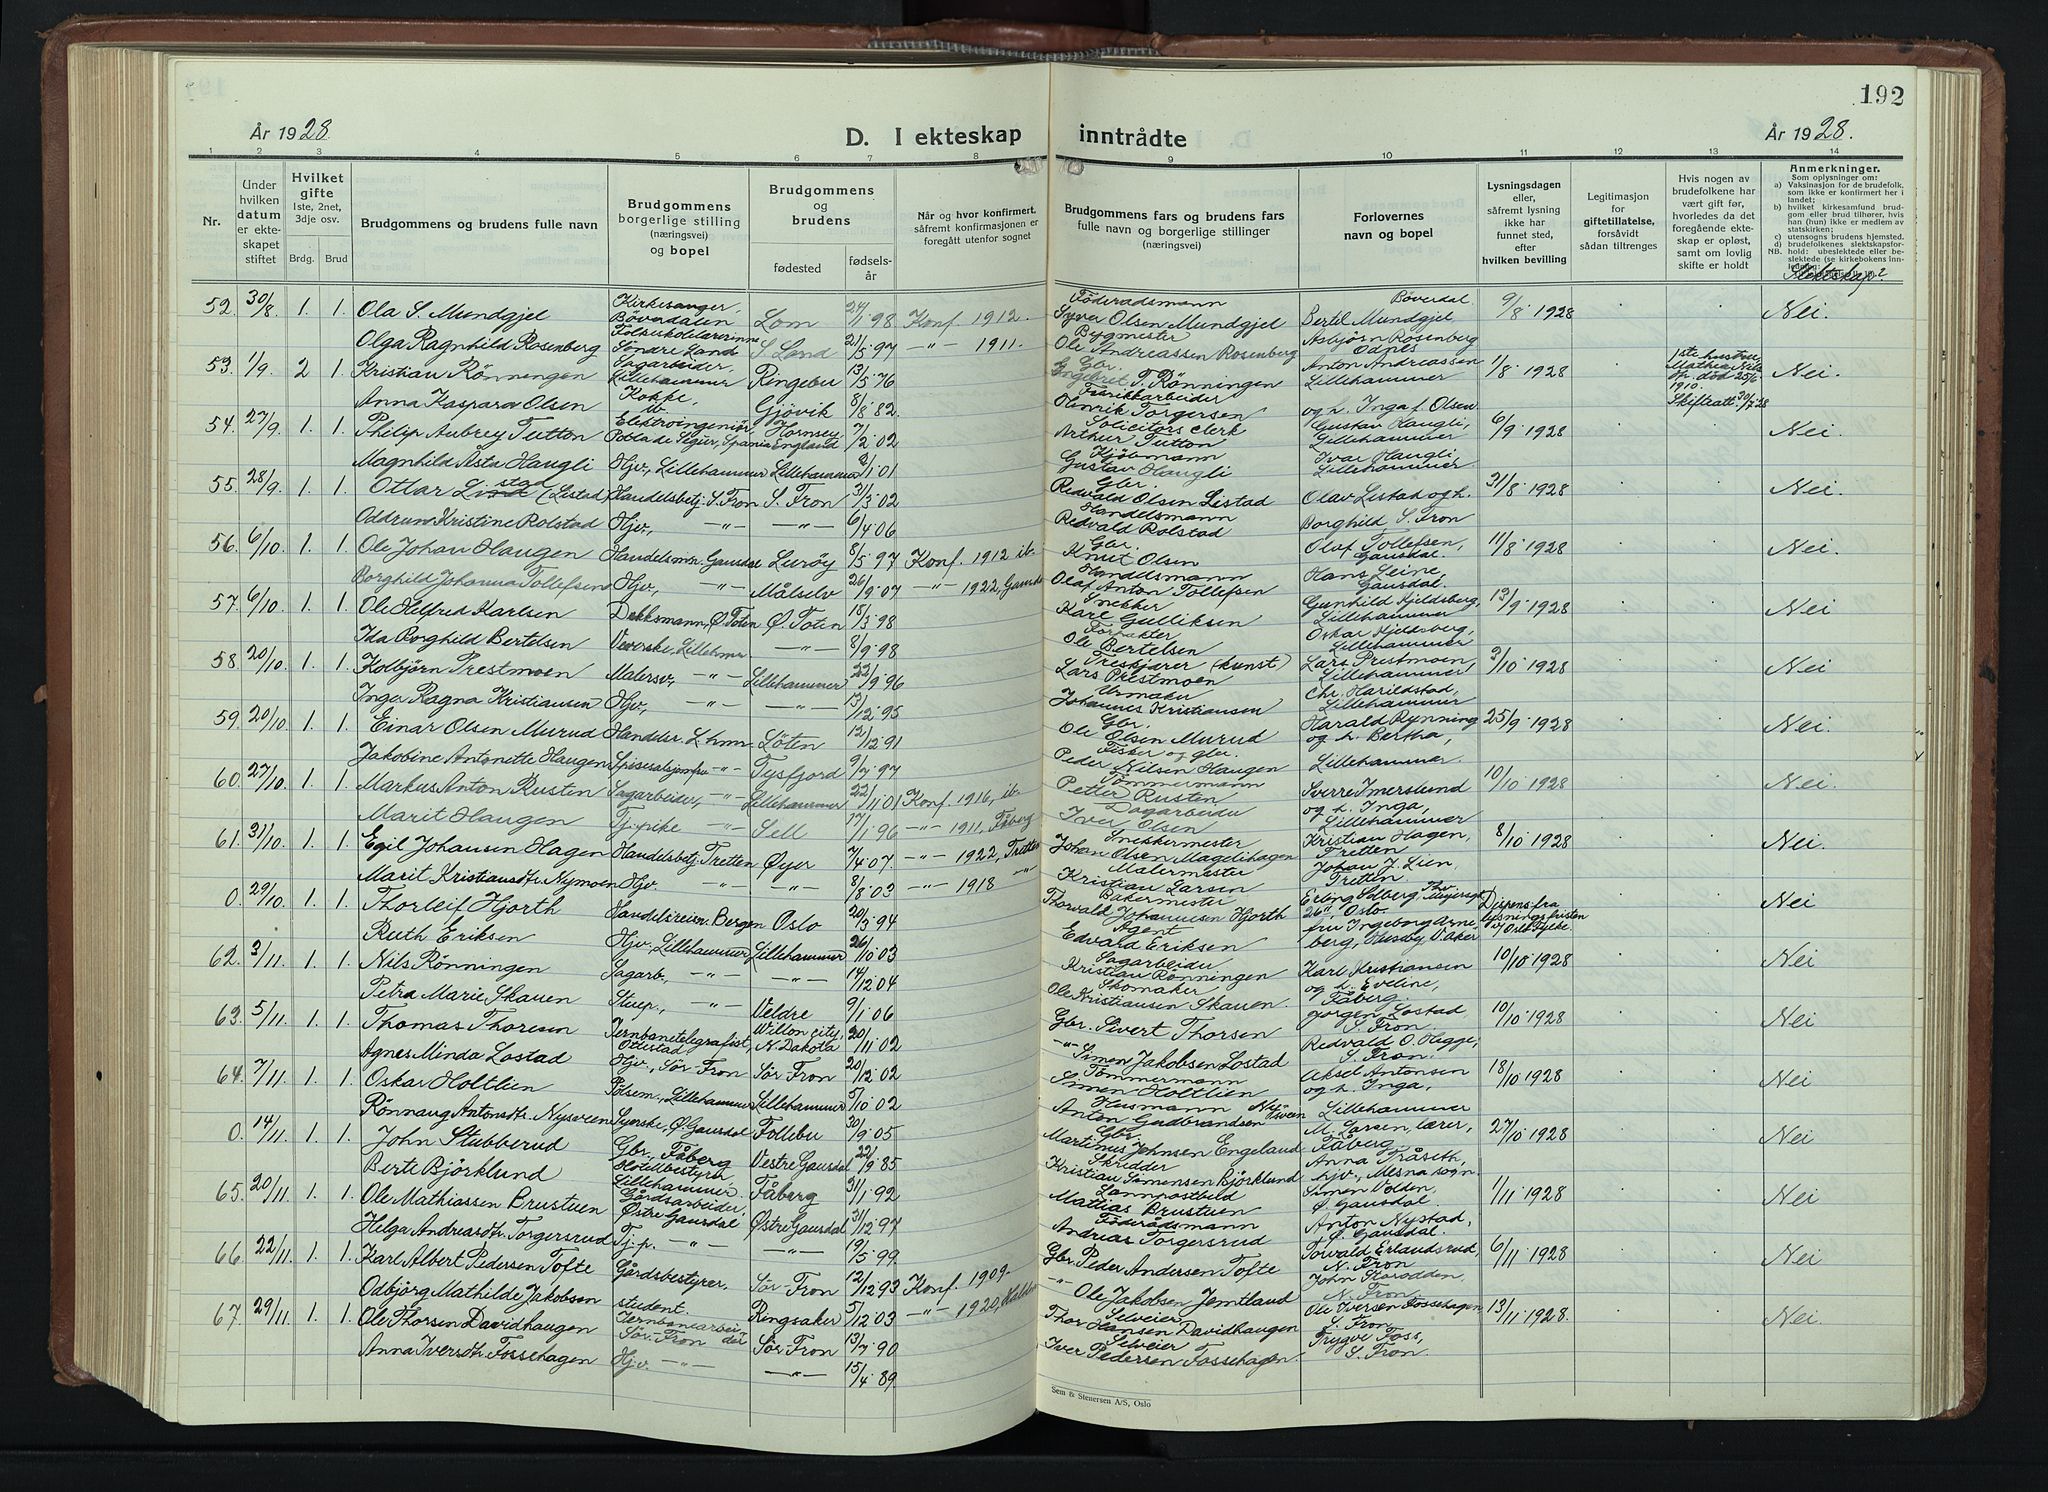 192
År 1928
D. I ekteskap inntrådte
År 1928.
1 2 3 4 5 6 7 8 9 10 11 12 13 14
Nr.
Under hvilken datum er ekteskapet stiftet
Hvilket gifte 1ste, 2net, 3dje osv.
Brdg. Brud
Brudgommens og brudens fulle navn
Brudgommens borgerlige stilling (næringsvei) og bopel
Brudgommens og brudens
fødested
fødselsår
Når og hvor konfirmert, såfremt konfirmasjonen er foregått utenfor sognet
Brudgommens fars og brudens fars fulle navn og borgerlige stillinger (næringsvei)
Forlovernes navn og bopel
Lysningsdagen eller, såfremt lysning ikke har funnet sted, efter hvilken bevilling
Legitimasjon for giftetillatelse, forsåvidt sådan tiltrenges
Hvis nogen av brudefolkene har vært gift før, hvorledes da det foregående ekteskap er opløst, samt om lovlig skifte er holdt
Anmerkninger.
Som oplysninger om:
a) Vaksinasjon for de brudefolk, som ikke er konfirmert her i landet;
b) hvilket kirkesamfund brudgom eller brud tilhører, hvis han (hun) ikke er medlem av statskirken;
c) utensogns brudens hjemsted.
d) brudefolkenes slektskapsforhold: ubeslektede eller beslektede (se kirkebokens
Slektskap?
52. 30/8. 1. 1. Ola S. Mundgjel Kirkesanger, Böverdalen Lom 24/1 98 Konf. 1912. Föderadsmann Syver Olsen Mundgjel Bertil Mundgjel Böverdal 9/8 1928 Nei.
Olga Ragnhild Rosenberg Söndre Land S. Land 21/5 97 -"- 1911. Bygmester Ole Andreassen Rosenberg Asbjörn Rosenberg Odnes
53. 1/9. 2 1. Kristian Rönningen Sagarbeider, Lillehammer Ringebu 13/5 76 Gbr. Engebret T. Rönningen Anton Andreassen Lillehammer 1/8 1928 1ste hustru Mathea Nils dp. död 25/6 1910. Skifteatt. 30/7 28 Nei.
Anna Kaspara Olsen Kokke, ib. Gjövik 8/8 82. Fabrikkarbeider Olinrik Torgersen og h. Inga f. Olsen
54. 27/9. 1. 1. Philip Aubrey Tutton Elektroingeniör, Pobla de Segur, Spania Hornsey, England 7/2 02 Solicitors Clerk Arthur Tutton Gustav Haugli, Lillehammer 6/9 1928 Nei.
Magnhild Åsta Haugli Hjv., Lillehammer Lillehammer 1/1 01 Kjöbmann Gustav Haugli Ivar Haugli, Lillehammer
55. 28/9. 1. 1. Ottar Listad (Listad) Handelsbetj. S. Fron S. Fron 31/3 02 Gbr. Redvald Olsen Listad Olav Listad og h. 31/8 1928 Nei.
Oddrun Kristine Rolstad Hjv., -"- -"- 6/4 06 Handelsmann Redvald Rolstad Borghild S. Fron
56. 6/10. 1. 1. Ole Johan Haugen Handelsmn. Gausdal Luröy 8/5 97 Konf. 1912 ib. Gbr. Knut Olsen Olaf Tollefsen, Gausdal. 11/8 1928 Nei
Borghild Johanna Tollefsen Hjv., -"- Målselv 26/9 07 -"- 1922, Gausdal Handelsmann Olaf Anton Tollefsen Hans Leine, Gausdal.
57. 6/10. 1. 1. Ole Alfred Karlsen Dekksmann, Ø. Toten Ø. Toten 18/3 98 Snekker Karl Gulliksen Gunhild Kjeldsberg, Lillehammer 13/9 1928 Nei
Ida Borghild Bertelsen Veverske, Lillehmer -"- 8/9 98 Forpakter Ole Bertelsen Oskar Kjeldsberg, Lillehammer
58. 20/10. 1. 1. Kolbjörn Prestmoen Malersv., -"- Lillehammer 22/9 96 Treskjærer (kunst) Lars Prestmoen Lars Prestmoen, Lillehammer 3/10 1928 Nei
Inga Ragna Kristiansen Hjv., -"- -"- 13/12 95 Urmaker Johannes Kristiansen Chr. Harildstad, Lillehammer
59. 20/10. 1. 1. Einar Olsen Murud Handelsr. L.hmr. Löten 12/12 91 Gbr. Ole Olsen Murud Harald Rynning og h. Bertha, 25/9 1928 Nei.
Jakobine Antonette Haugen Spisesalsjomfru -"- Tysfjord 9/7 97 Fisker og gbr. Peder Nilsen Haugen Lillehammer.
60. 27/10. 1. 1. Markus Anton Rusten Sagarbeider, -"- Lillehammer 22/11 01 Konf. 1916, ib. Tömmermann Petter Rusten Sverre Imerslund og h. Inga, 10/10 1928 Nei
Marit Haugen Tj.pike -"- Sell 17/1 96 -"- 1911, Fåberg Dagarbeider Iver Olsen Lillehammer
61. 31/10. 1. 1. Egil Johansen Hagen Handelsbetj. Tretten Øyer 7/4 07. -"- 1922, Tretten Snekkermester Johan Olsen Magelihagen Kristian Hagen, Tretten 8/10 1928 Nei.
Marit Kristiansdtr. Nymoen Hjv. -"- -"- 8/8 03 -"- 1918 -"- Malermester Kristian Larsen Johan J. Lien, Tretten.
0. 29/10. 1. 1. Thorleif Hjorth Handelsreisn. Bergen Oslo 20/3 94 Bakermester Thorvald Johannesen Hjorth Erling Solberg, Thv. Meyersgt 26", Oslo. Dispens fra lysningsfristen Nei
Ruth Eriksen Hjv., Lillehammer Lillehammer 26/10 03 Agent Edvard Eriksen fru Ingeborg Arneberg, Huseby, V. Aker
62. 3/11. 1. 1. Nils Rönningen Sagarb., -"- -"- 14/12 04 Sagarbeider Kristian Rönningen Karl Kristiansen og h. Eveline, 10/10 1928 Nei
Petra Marie Skauen Stuep., -"- Veldre 9/1 06 Skomaker Ole Kristiansen Skauen. Fåberg.
63. 5/11. 1. 1. Thomas Thoresen Jernbanetelegrafist, Ottestad Willon city, N. Dakota 20/11 02 Gbr. Sivert Thorsen Jörgen Lostad S. Fron. 10/10 1928 Nei
Agnes Minda Lostad Hjv., Sör-Fron Sör-Fron 20/12 02 -"- Simen Jakobsen Lostad Redvald O. Higge, S. Fron.
64. 7/11. 1. 1. Oskar Holtlien Pölsem., Lillehammer Lillehammer 5/10 02 Tömmermann Simen Holtlien Aksel Antonsen og h. Inga, 18/10 1928 Nei
Rönnaug Antonsdtr. Nysveen Syerske, Ø. Gausdal Follebu 30/9 05 Husmann Anton Gudbrandsen Nysveen Lillehammer
0. 14/11. 1. 1. John Stubberud Gbr., Fåberg Vestre Gausdal 22/9 85 Gbr. Martinus Johnsen Engeland M. Larsen, lærer, Fåberg. 27/10 1928 Nei
Berte Björklund Hotellbestyr., Lillehammer. Fåberg 31/1 92 Skredder Kristian Simensen Björklund Anna Tråseth, hjv., Mesna sogn.
65. 20/11. 1. 1. Ole Mathiassen Brustuen Gårdsarbeider, Østre Gausdal Østre Gausdal 31/12 97 Lannpostbud Mathias Brustuen Simen Volden, Ø. Gausdal 1/11 1928 Nei
Helga Andreasdtr. Torgersrud Tj.p. -"- -"- 19/5 99. Föderådsmann Andreas Torgersrud Anton Nystad, Ø. Gausdal.
66. 22/11. 1. 1. Karl Albert Pedersen Tofte Gårdsbestyrer, Sör-Fron 12/12 93 Konf. 1909- Gbr. Peder Andersen Tofte Torvald Erlandsrud, N. Fron 6/11 1928 Nei
Odbjörg Mathilde Jakobsen student. Ringsaker 5/12 03 -"- 1920, -"- Ole Jakobsen Jemtland John Storodden, N. Fron.
67. 29/11. 1. 1. Ole Thorsen Davidhaugen Jernbanearbeider Sör-Fron Sör-Fron 13/7 90 Selveier Thor Hansen Davidhaugen Ole Iversen Fossehagen S. Fron 13/11 1928. Nei.
Anna Iversdtr. Fossehagen Hjv. -"- -"- 15/4 89 Selveier Iver Pedersen Fossehagen. Trygve Foss, S. Fron.
Sem & Stenersen A/S, Oslo